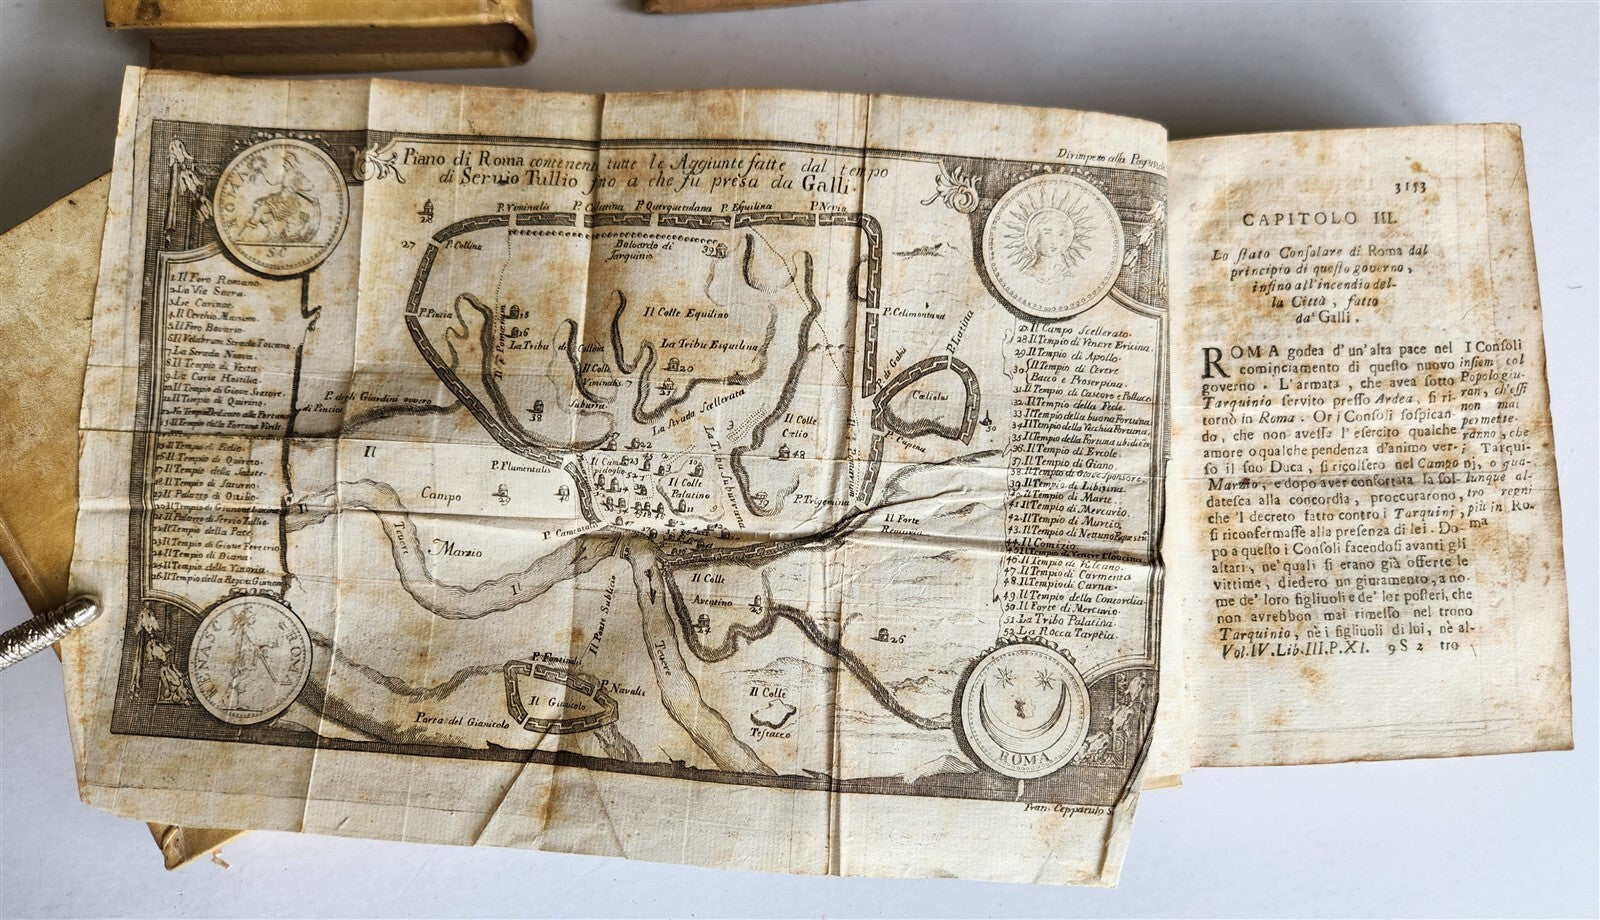 Piano di Roma contenenn tutte le Aggiunte fatte dal tempo
di Seruio Tullio fno a che fu presa da Galli.
Dirimpeto alla
ROMA
S C
1. Il Foro Romano.
2. La Via Sacra.
3. Le Carinae.
4. Il Cerchio Massimo.
5. Il Foro Boario.
6. Il Velabrum Strada Toscana
7. La Strada Nuova.
8. Il Tempio di Vesta.
9. La Curia Hostilia.
10. Il Tempio di Gioue Statore.
11. Il Tempio di Quirino.
13. Il Tempio della Fortuna Virile.
15. Il Tempio di Fidio.
16. Il Tempio di Quirino.
17. Il Tempio della Salute.
18. Il Tempio di Saturno.
19. Il Palazzo di Ostilio.
20. Il Tempio di Giunone Lucina
21. Il Palazzo di Seruio Tullio.
22. Il Tempio della Pace.
23. Il Tempio di Gioue Feretrio.
24. Il Tempio di Diana.
25. Il Tempio della Vittoria.
26. Il Tempio della Regou Giunone
P. Viminalis
P. Querquetulana
P. Esquilina
P. Nevia
28
27
P. Collina
Baloardo di
Tarquinio
39
P. Pincia
15
16
Il Colle Equilino
La Tribu di Collina
La Tribu Esquilina
P. Celimontana
P. Latina
P. de Gabii
Il Colle
Viminalis 7
20
21
P. degli Giardini ouuero
di Pincius
38
Suburra
La Strada Scellerata
3
Il Colle
Cælio
Cæliolus
30
P. Capena
48
22
La Tribu Suburrana
Il
Campo
Marzio
P. Flumentalis
Il Cam
pidoglio
Il Colle
Palatino
11
P. Trigemina
P. Carmentalis
Il Forte
Il
Teuere
Il
Il Ponte Sublicio
Il Colle
Aventino
26
Teuere
P. Fontinalis
P. Navalis
Il Gianicolo
Porta del Gianicolo
Il Colle
Testacco
27. Il Campo Scellerato.
28. Il Tempio di Venere Ericina.
29. Il Tempio di Apollo.
30. Il Tempio di Cerere
Bacco e Proserpina.
31. Il Tempio di Castore e Polluce.
32. Il Tempio della Fede.
33. Il Tempio della buona Fortuna.
34. Il Tempio della Vecchia Fortuna.
36. Il Tempio di Ercole.
37. Il Tempio di Giano.
39. Il Tempio di Libitina.
40. Il Tempio di Marte.
41. Il Tempio di Mercurio.
42. Il Tempio di Murcio.
43. Il Tempio di Nettuno
44. Il Comizio.
45. Il Tempio di Venere Cloacina
46. Il Tempio di Vulcano.
47. Il Tempio di Carmenta
48. Il Tempio di Carna.
49. Il Tempio della Concordia.
50. Il Forte di Mercurio.
51. La Tribo Palatina.
52. La Rocca Tarpèia.
ROMA
ROMA
Fran. Cepparulo S.
3153
CAPITOLO III.
Lo stato Consolare di Roma dal
principio di questo governo,
infino all'incendio del-
la Città, fatto
da' Galli.
ROMA godea d'un'alta pace nel
cominciamento di questo nuovo
governo. L'armata, che avea sotto
Tarquinio servito presso Ardea, si ri-
tornò in Roma. Or i Consoli sospican-
do, che non avesse l'esercito qualche
amore o qualche pendenza d'animo ver-
so il suo Duca, si ricolsero nel Campo
Marzio, e dopo aver confortata la sol-
datesca alla concordia, proccurarono,
che 'l decreto fatto contro i Tarquinj,
si riconfermasse alla presenza di lei. Do-
po a questo i Consoli facendosi avanti gli
altari, ne' quali si erano già offerte le
vittime, diedero un giuramento, a no-
me de' loro figliuoli e de' lor posteri, che
non avrebbon mai rimesso nel trono
Tarquinio, nè i figliuoli di lui, nè al-
Vol.IV.Lib.III.P.XI. 9S 2 tro
I Consoli
insiem, col
Popolo giu-
ran, ch'essi
non mai
permette-
ranno, che
i Tarqui-
nj, o qua-
lunque al-
tro regni
più in Ro-
ma